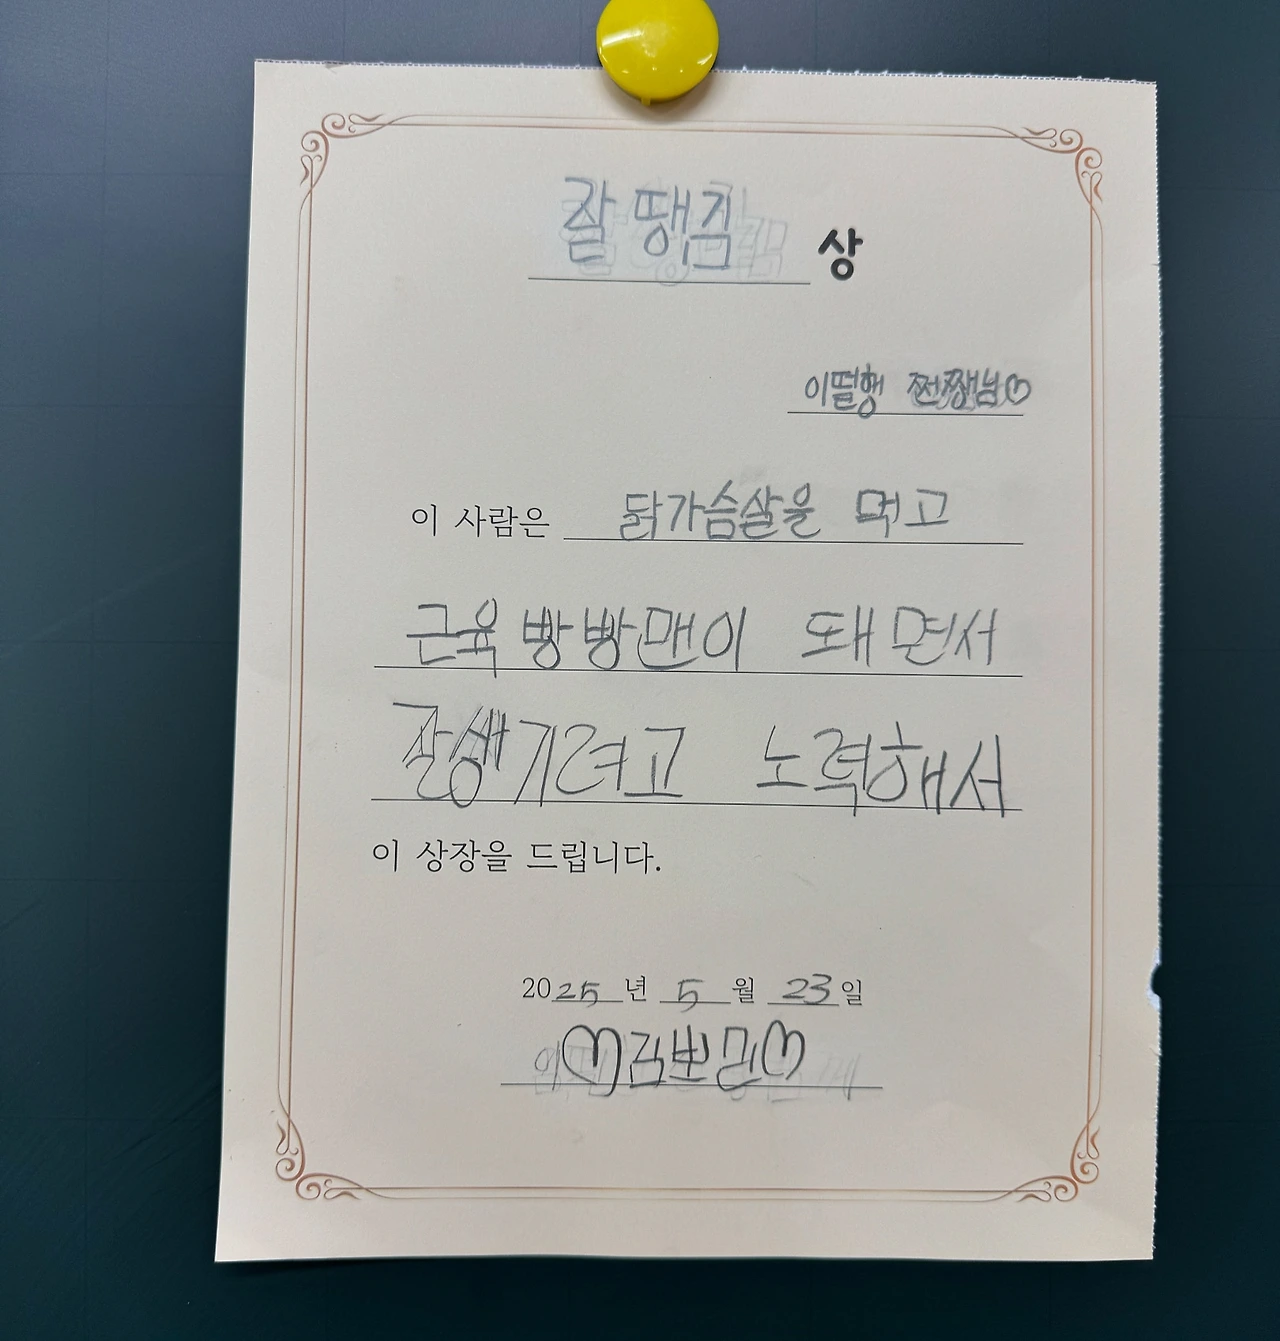 잘땡김 상
이떨행 쩐쨍님♡
이 사람은 닭가슴살을 먹고
근육빵빵맨이 돼면서
잘생기려고 노력해서
이 상장을 드립니다.
2025년 5월 23일
♡김뽀민♡